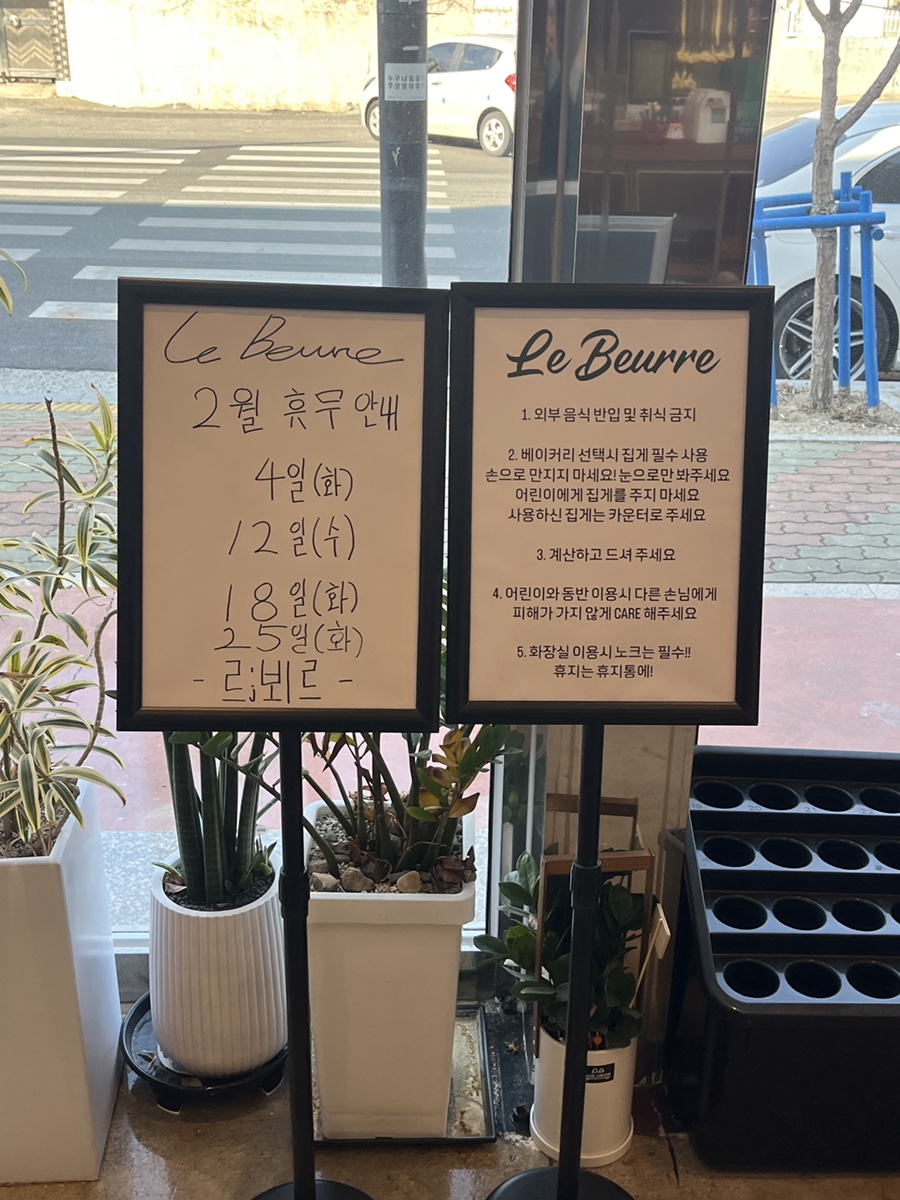 Le Beurre
2월 휴무 안내
4일(화)
12일(수)
18일(화)
25일(화)
- 르뵈르 -
Le Beurre
1. 외부 음식 반입 및 취식 금지
2. 베이커리 선택시 집게 필수 사용
손으로 만지지 마세요! 눈으로만 봐주세요
어린이에게 집게를 주지 마세요
사용하신 집게는 카운터로 주세요
3. 계산하고 드셔 주세요
4. 어린이와 동반 이용시 다른 손님에게
피해가 가지 않게 CARE 해주세요
5. 화장실 이용시 노크는 필수!!
휴지는 휴지통에!
19 20 21